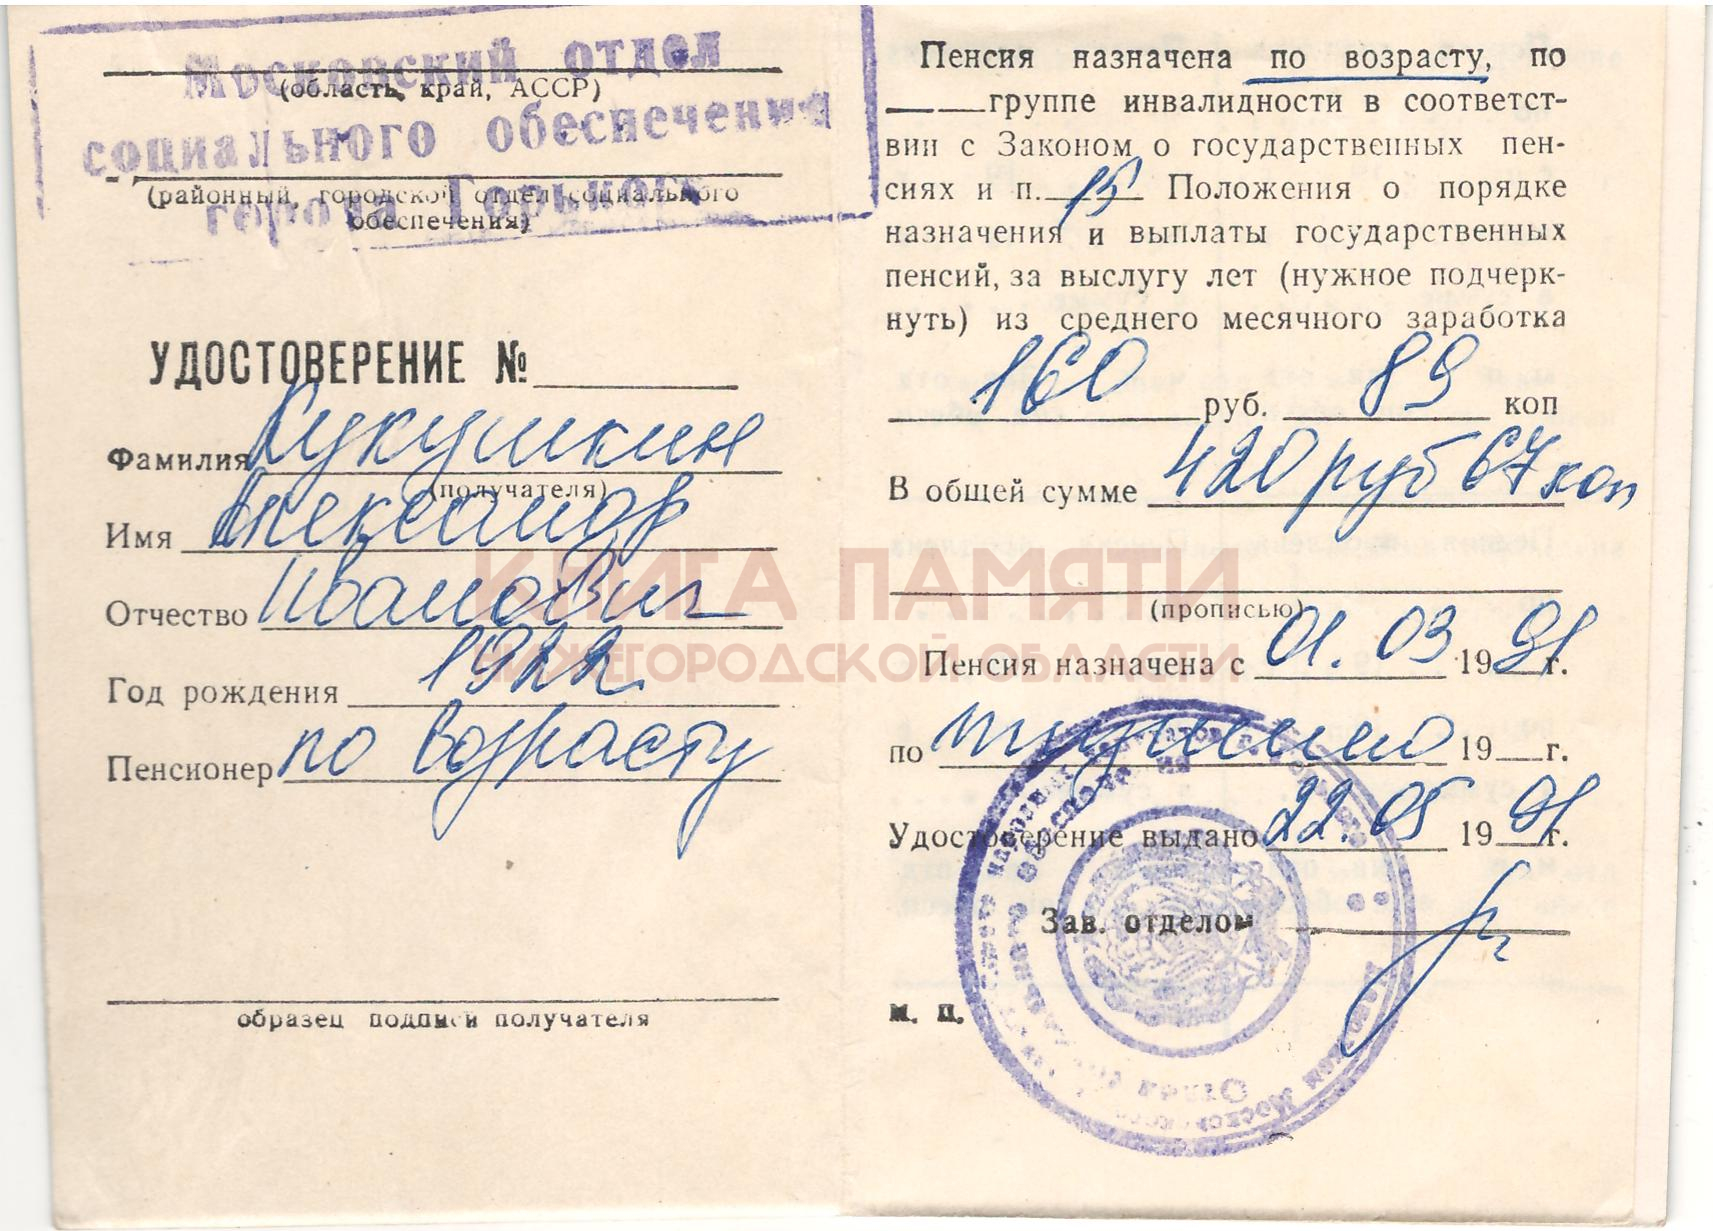 Московский отдел
(область, край, АССР)
социального обеспечения
(районный, городской отдел социального
города Горького
обеспечения)
УДОСТОВЕРЕНИЕ №
Фамилия Кукушкин
(получателя)
Имя Александр
Отчество Иванович
Год рождения 1922
Пенсионер по возрасту
образец подписи получателя
Пенсия назначена по возрасту, по
группе инвалидности в соответст-
вии с Законом о государственных пен-
сиях и п. 15 Положения о порядке
назначения и выплаты государственных
пенсий, за выслугу лет (нужное подчерк-
нуть) из среднего месячного заработка
160 руб. 89 коп
В общей сумме 420 руб 67 коп
(прописью)
Пенсия назначена с 01.03 1991 г.
по пожизненно 19 г.
Удостоверение выдано 22.05 1991 г.
Зав. отделом
м. п.
КНИГА ПАМЯТИ
НИЖЕГОРОДСКОЙ ОБЛАСТИ